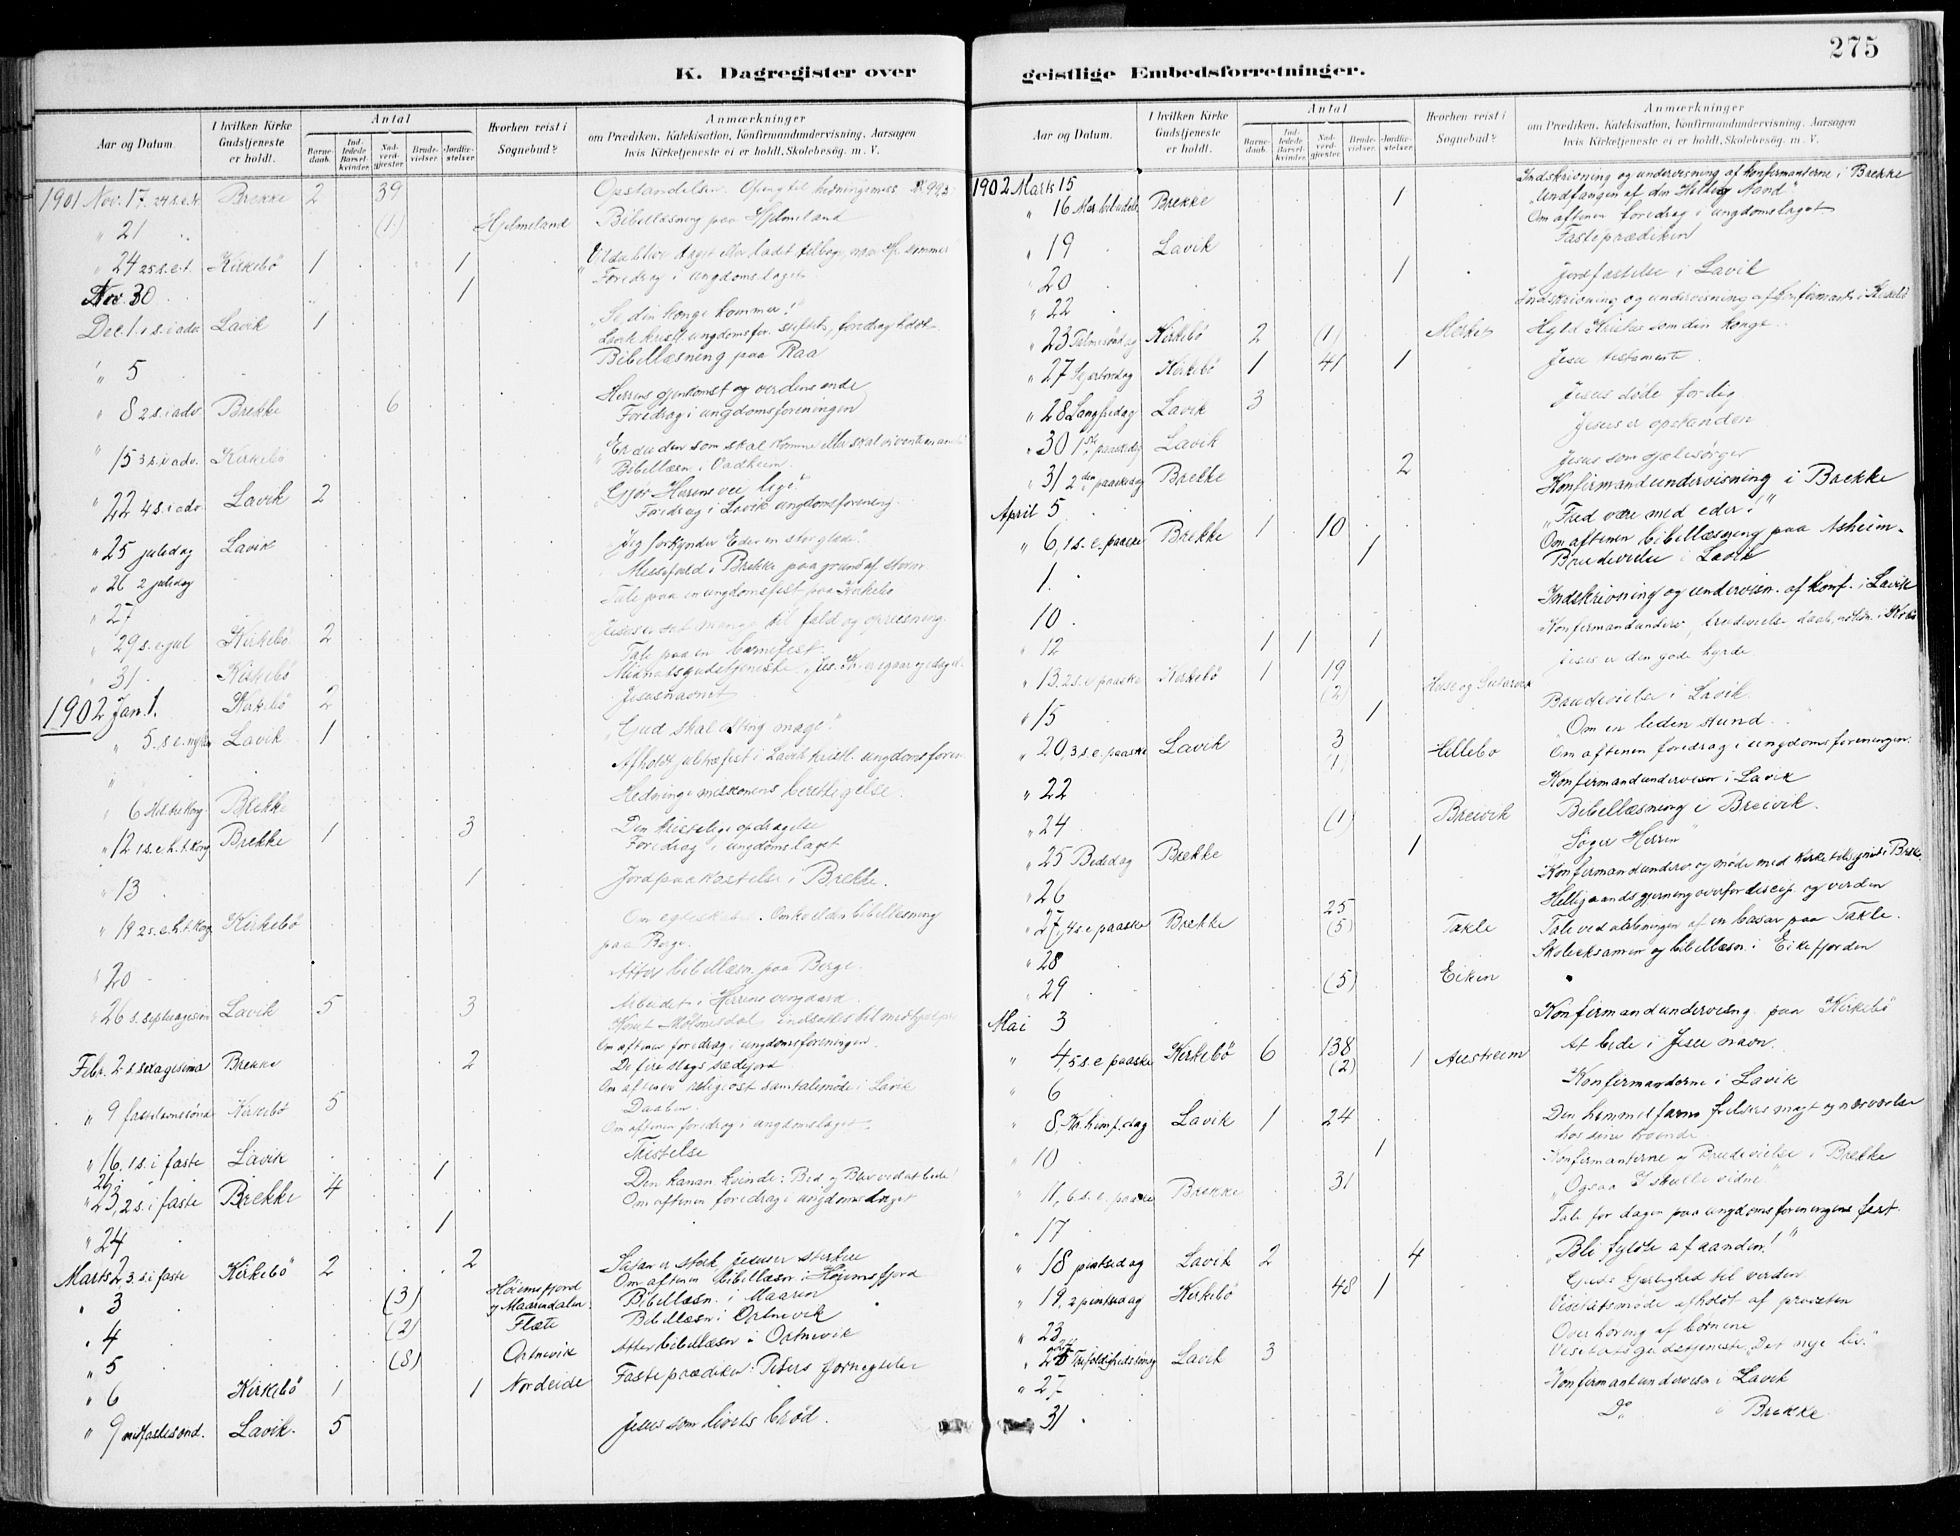 275
K. Dagregister over geistlige Embedsforretninger.
Aar og Datum.
I hvilken Kirke Gudstjeneste er holdt.
Antal
Barnedaab.
Indledede Barselkvinder.
Nadverdgjester.
Brudevielser.
Jordfæstelser.
Hvorhen reist i Sognebud?
Anmærkninger
om Prædiken, Katekisation, Konfirmandundervisning, Aarsagen hvis Kirketjeneste ei er holdt, Skolebesög. m. V.
1901 Nov. 17. 24 s.e.tr. Brekke 2 39 Opstandelsen. Ofring til hedningemiss
" 21 (1) Hjelmeland Bibellæsning paa Hjelmeland
" 24 25 s.e.t. Kirkebö 1 1
Foredrag i ungdomslaget
Nov. 30 1
Dec. 1 1 s. i adv. Lavik 1 "Se din konge kommer!"
" 5 Bibellæsning paa Raa
" 8 2 s. i adv. Brekke 6 Herrens gjenkomst og verdens ende
Foredrag i ungdomsforeningen
" 15 3 s. i adv. Kirkebö "Er du den som skal komme eller skal vi vente en anden
Bibellæsn. i Vadheim
" 22 4 s. i adv. Lavik 2 Gjör Herrens vei lige!"
Foredrag i Lavik ungdomsforening.
" 25 juledag Lavik "Jeg forkynder Eder en stor glæde."
" 26 2 juledag Messefald i Brekke paa grund af storm
" 27 Tale paa en ungdomsfest paa Kirkebö
" 29 s. e. jul Kirkebö 2 til fald og opreisning.
Tale paa en barnefest.
" 31 Kirkebö
1902 Jan. 1. Kirkebö 2 Jesusnavnet
" 5. s.e. nyaar Lavik 1 "Gud skal
Afholdt juletræfest i Lavik kristl. ungdomsforen.
" 6 Hel. tre kong. Brekke Hedningemissionens berettigelse.
" 12 1 s. e. h. t. kong Brekke 1 3 Den kristelige opdragelse
Foredrag i ungdomslaget
" 13 1 Jordpaakastelse i Brekke.
" 19 2 s. e. h. t. kong. Kirkebö Om egteskabet. Om kvelden bibellæsning
paa Berge.
" 20 Atter bibellæsn. paa Berge.
" 26 s. septuagesima Lavik 5 3 Arbeidet i Herrens vingaard.
Om aftenen foredrag i ungdomsforeningen.
Febr. 2 s. sexagesima Brekke 2 De fire slags sædejord
Om aftenen religiöst samtalemöde i Lavik
" 9 fastelavnssönd. Kirkebö 5 Daaben
Om aftenen foredrag i ungdomslaget.
" 16. 1 s. i faste Lavik Fristelse
1
" 23, 2 s. i faste Brekke 4 Den kanan. kvinde: Bed og bliv ved at bede!
Om aftenen foredrag i ungdomslaget
" 24 1
Marts 2 3. s. i faste Kirkebö 2 2 Satan er sterk, Jesus er sterkere
Om aftenen bibellæsn. i Höiemsfjord
" 3 (3) Höiemsfjord og Maarendalen Bibellæsn. i Maaren
" 4 (2) Flæte Bibellæsn. i Ortnevik
" 5 (8) Ortnevik Atter bibellæsn. i Ortnevik
" 6 Kirkebö 1 1 Nordeide Fasteprædiken: Peters fornegtelse
" 9 midfastesönd. Lavik. 5 Jesus som livets bröd.
1902 Marts 15 Indskrivning og undervisning af konfirmanterne i Brekke
" 16 Mar. bebudelse Brekke 1 "Undfangen af den Hellig Aand"
Om aftenen foredrag i ungdomslaget
" 19 Lavik Fasteprædiken
" 20 1 Jordfæstelse i Lavik
" 22 Indskrivning og undervisning af konfirmant. i Kirkebö
" 23 Palmesöndag Kirkebö 2 (1) Merket Hyld Kristus som din konge.
" 27 Skjertorsdag Kirkebö 1 41 1 Jesu testamente.
" 28 Langfredag Lavik 3 Jesus döde for dig
" 30 1ste paaskedag Lavik Jesus er opstanden
" 31 2den paaskedag Brekke 2 Jesus som sjælesörger
April 5 Konfirmandundervisning i Brekke
" 6, 1 s. e. paaske Brekke 1 10 "Fred være med eder!"
Om aftenen bibellæsning paa Asheim.
1. 1 Brudevielse i Lavik
10 Indskrivning og undervisn. af konf. i Lavik
" 12 1 1 1 Konfirmandunderv,
" 13. 2 s. e. paaske Kirkebö 1 19 (2) Jesus er den gode hyrde
" 15 1 Brudevielse i Lavik.
" 20, 3 s. e. paaske Lavik 3 (1) Hellebö "Om en liden stund..."
Om aftenen foredrag i ungdomsforeningen.
" 22 Konfirmandundervisn i Lavik
" 24 (1) Breivik Bibellæsning i Breivik.
" 25 Bededag Brekke 1 "Söger Herren"
" 26 Konfirmandunderv og möde med kirketilsynet i Brekke.
" 27, 4 s. e. paaske Brekke 25 (5) Takle Helligaandsgjerning overfor discip. og verden
Tale ved aabningen af en basar paa Takle.
" 28 Skoleeksamen og bibellæsn. i Eikefjorden
" 29 (5) Eiken
Mai 3 Konfirmandundervisng. paa Kirkebö
" 4 5 s. e. paaske Kirkebö 6 138 (2) 1 Austreim At bede i Jesu navn.
" 6 Konfirmanderne i Lavik
" 8, Kr. himf. dag Lavik 1 24 Den himmelfarne frelsers magt og nærværelse
hos sine troende.
" 10 1 Konfirmanterne og Brudevielse i Brekke
" 11, 6. s. e. paaske Brekke 31 "Ogsaa I skulle vidne"
" 17 Tale for dagen paa ungdomsforeningens fest.
" 18 pintsedag Lavik 2 4 "Bli fyldte af aanden!"
" 19, 2 pintsedag Kirkebö 48 1 Guds kjærlighed til verden
Visitatsmöde afholdt af provsten
" 23 Overhöring af börnene
" 25 Trefoldighedssöndag Lavik 3 Visitatsgudstjeneste, Det nye liv."
" 27 Konfirmantundervisn i Lavik
" 31 Do " Brekke